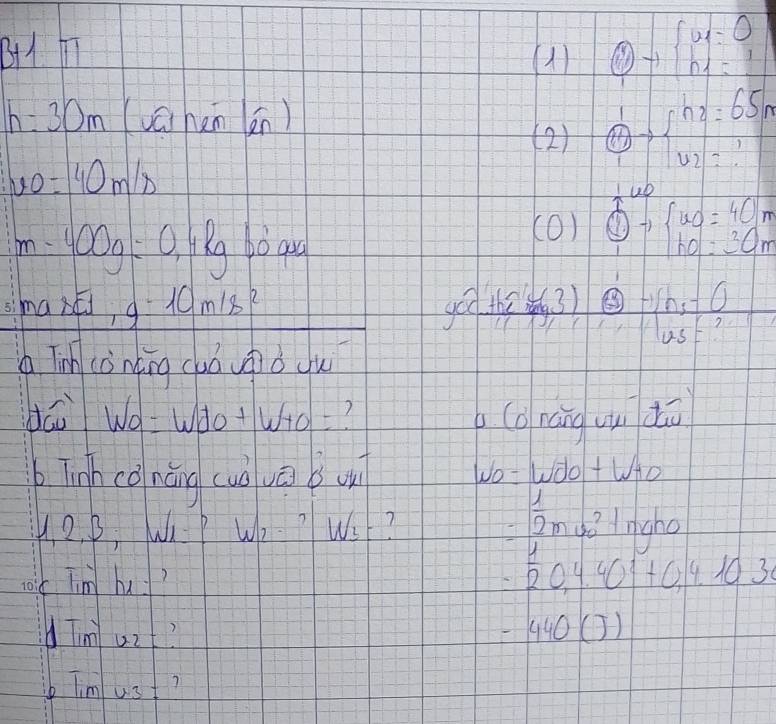 Bt1
h = 30m (vật ném lên)
v0 = 40m/s
m = 400g = 0,4kg bỏ qua
ma sát, g = 10m/s²
a Tính cơ năng của vật ở vị trí
đầu W0 = Wđ0 + Wt0 = ?
b Tính cơ năng của vật ở vị trí
1, 2, 3, W1 = ? W2 = ? W3 = ?
c Tìm h1 = ?
d Tìm v2 = ?
Tìm v3 = ?
(1) → { v1 = 0
h1 = ?
(2) → { h2 = 65m
v2 = ?
v0
(0) → { v0 = 40m
h0 = 30m
gốc thế năng (3) → { h3 = 0
v3 = ?
a Cơ năng vị trí đầu
W0 = Wđ0 + Wt0
= 1/2 m v0² + mgh0
= 1/2 0,4.40² + 0,4.10.30
= 440 (J)